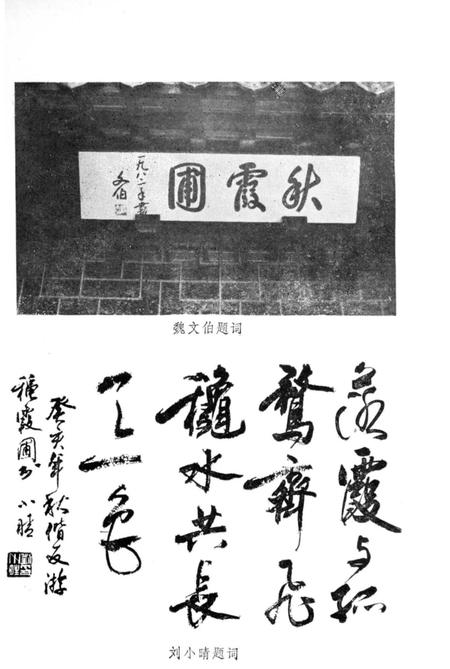 秋霞圃
一九八二年
文伯
魏文伯题词
落霞与孤
鶩齊飛
龝水共長
天一色
癸亥年秋偕友游
龝霞圃书 小晴
刘小晴题词